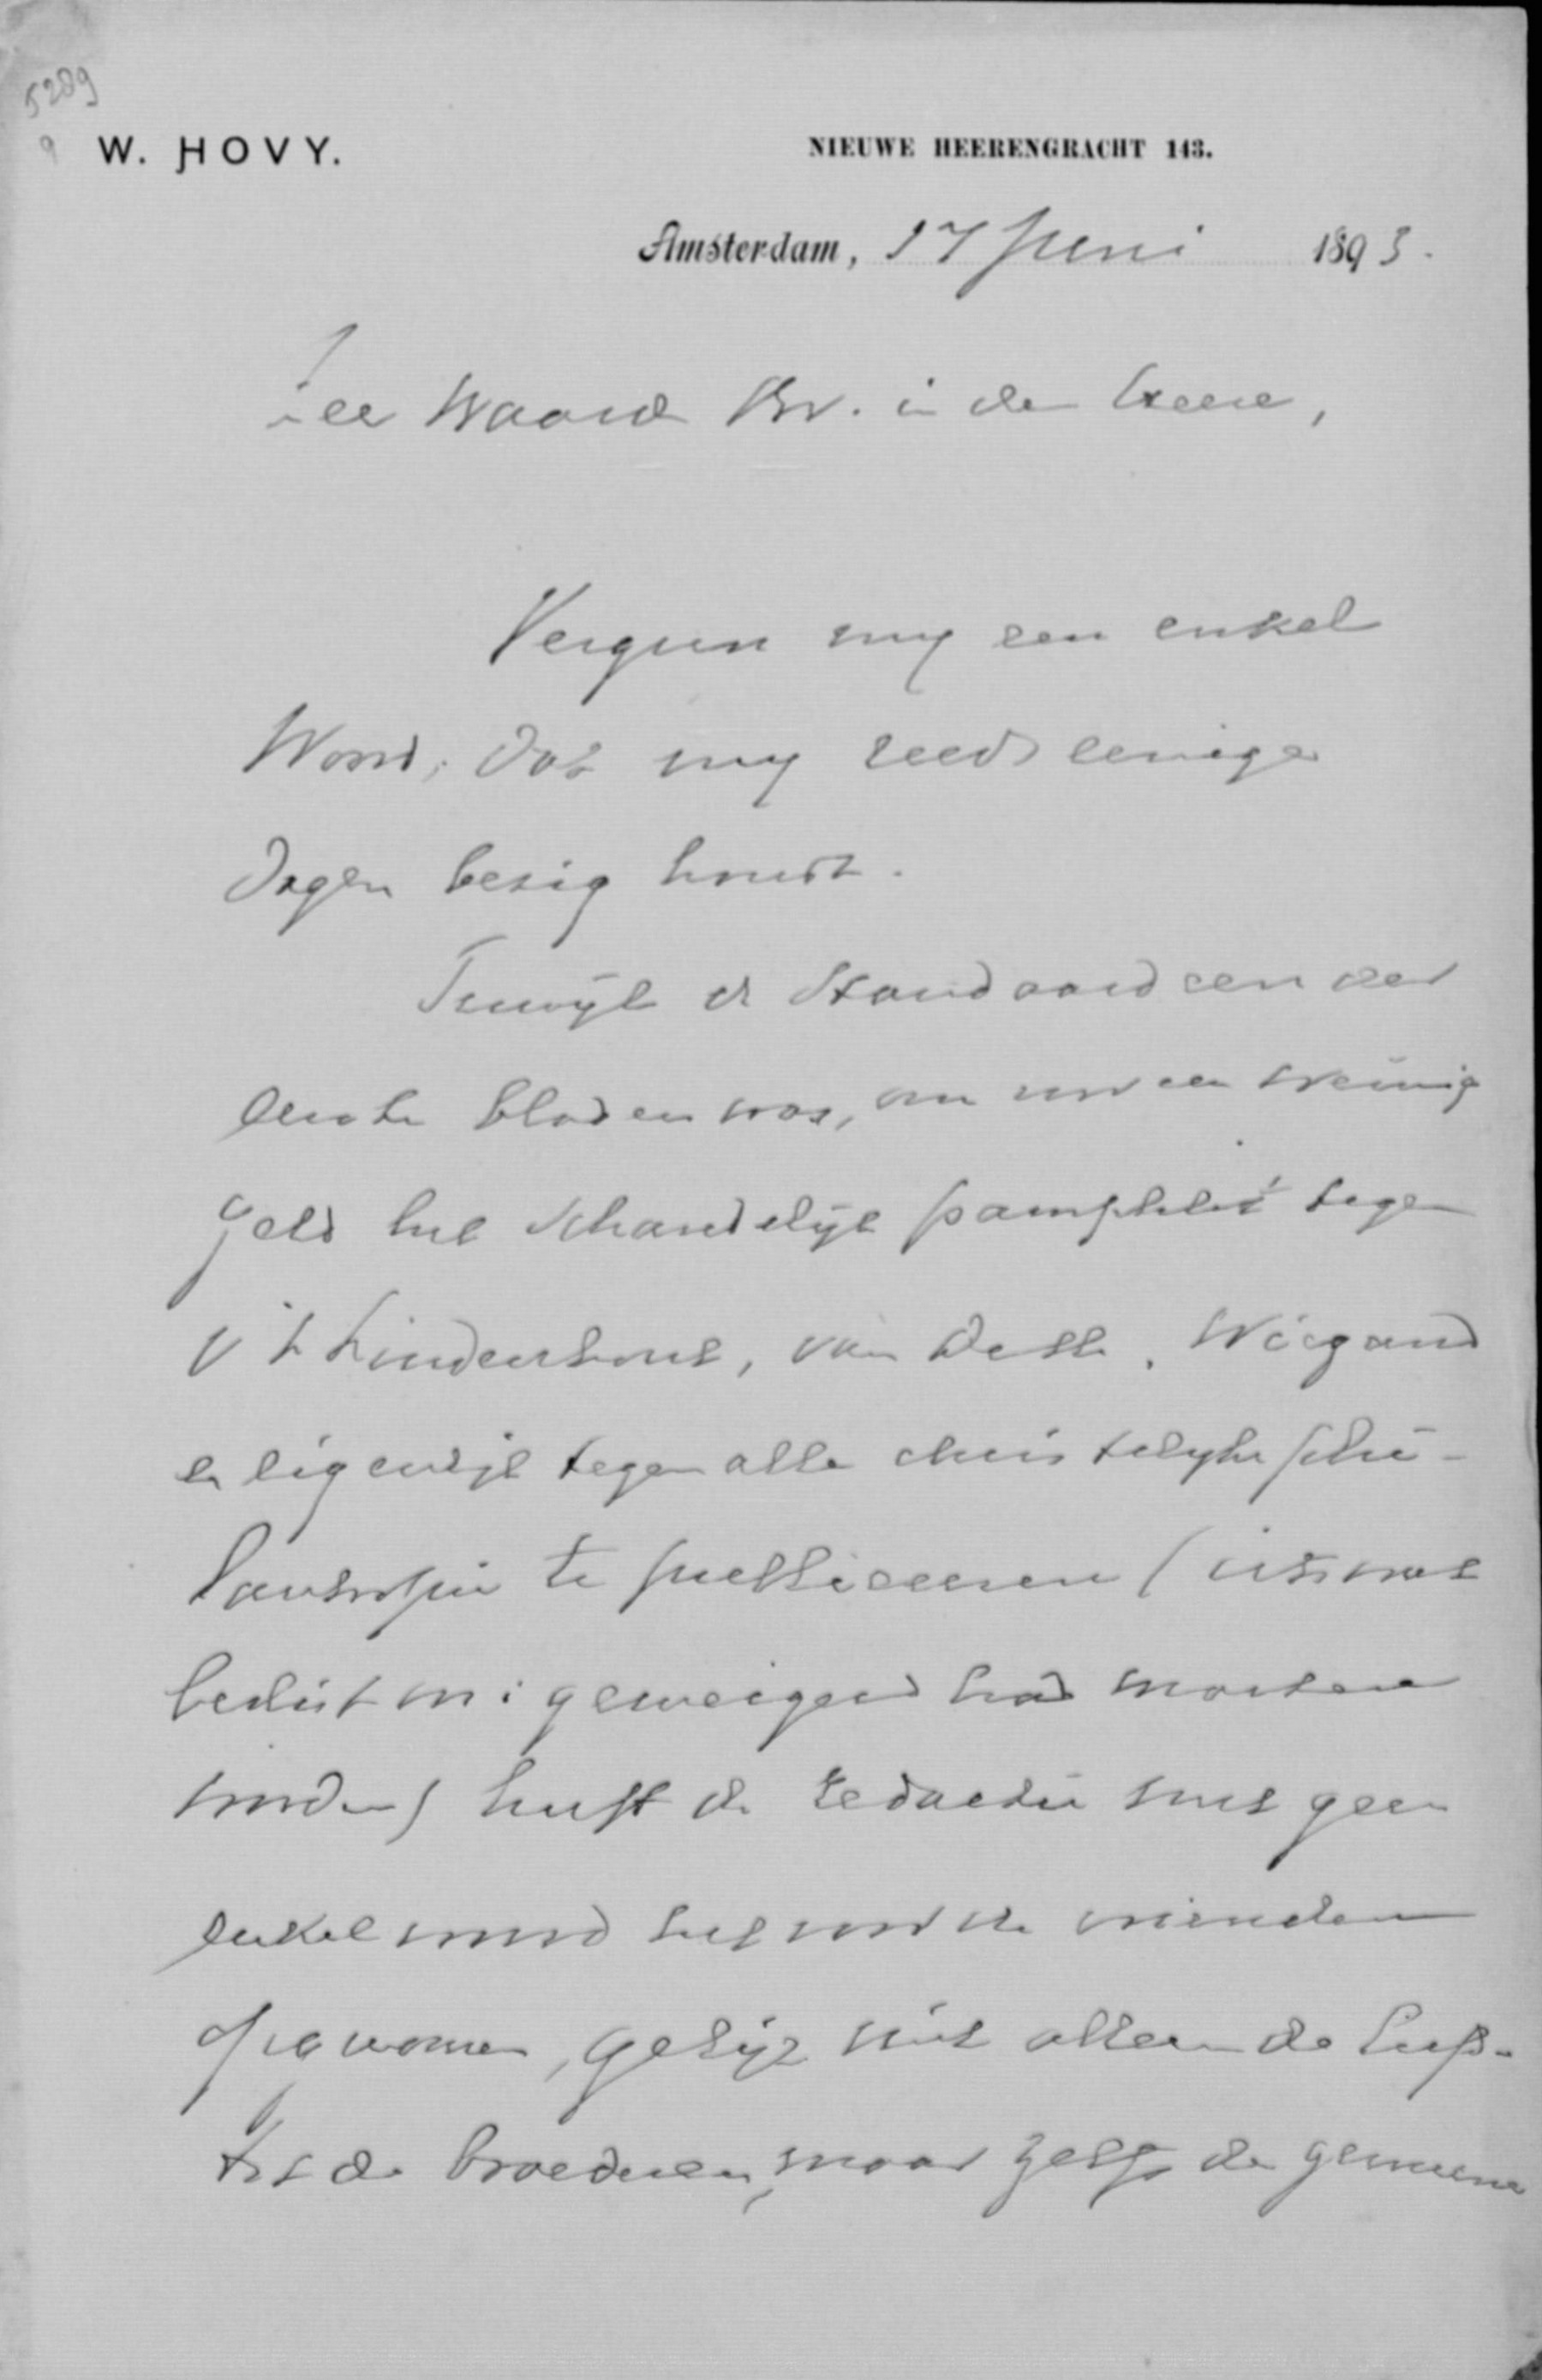 5289
W. HOVY.
NIEUWE HEERENGRACHT 143.
Amsterdam, 17 Juni 1893.
Zeer Waarde Br. in den Heere,
Vergun my een enkel
Woord, dat my reeds eenige
dagen bezig houdt.
Terwijl de Standaard een der
eerste bladen was, om voor een weinig
geld het schandelijk pamphlet tegen
v 't Lindenhout, van Deth, Wiegand
en eigenlijk tegen alle christelyke phi-
lantropie te publiceeren (iets wat
beslist m.i. geweigerd had moeten
worden) heeft de redactie nog geen
enkel woord voor de vrienden
opgenomen, gelijk niet alleen de liefde
tot de broederen, maar zelfs de gemeene